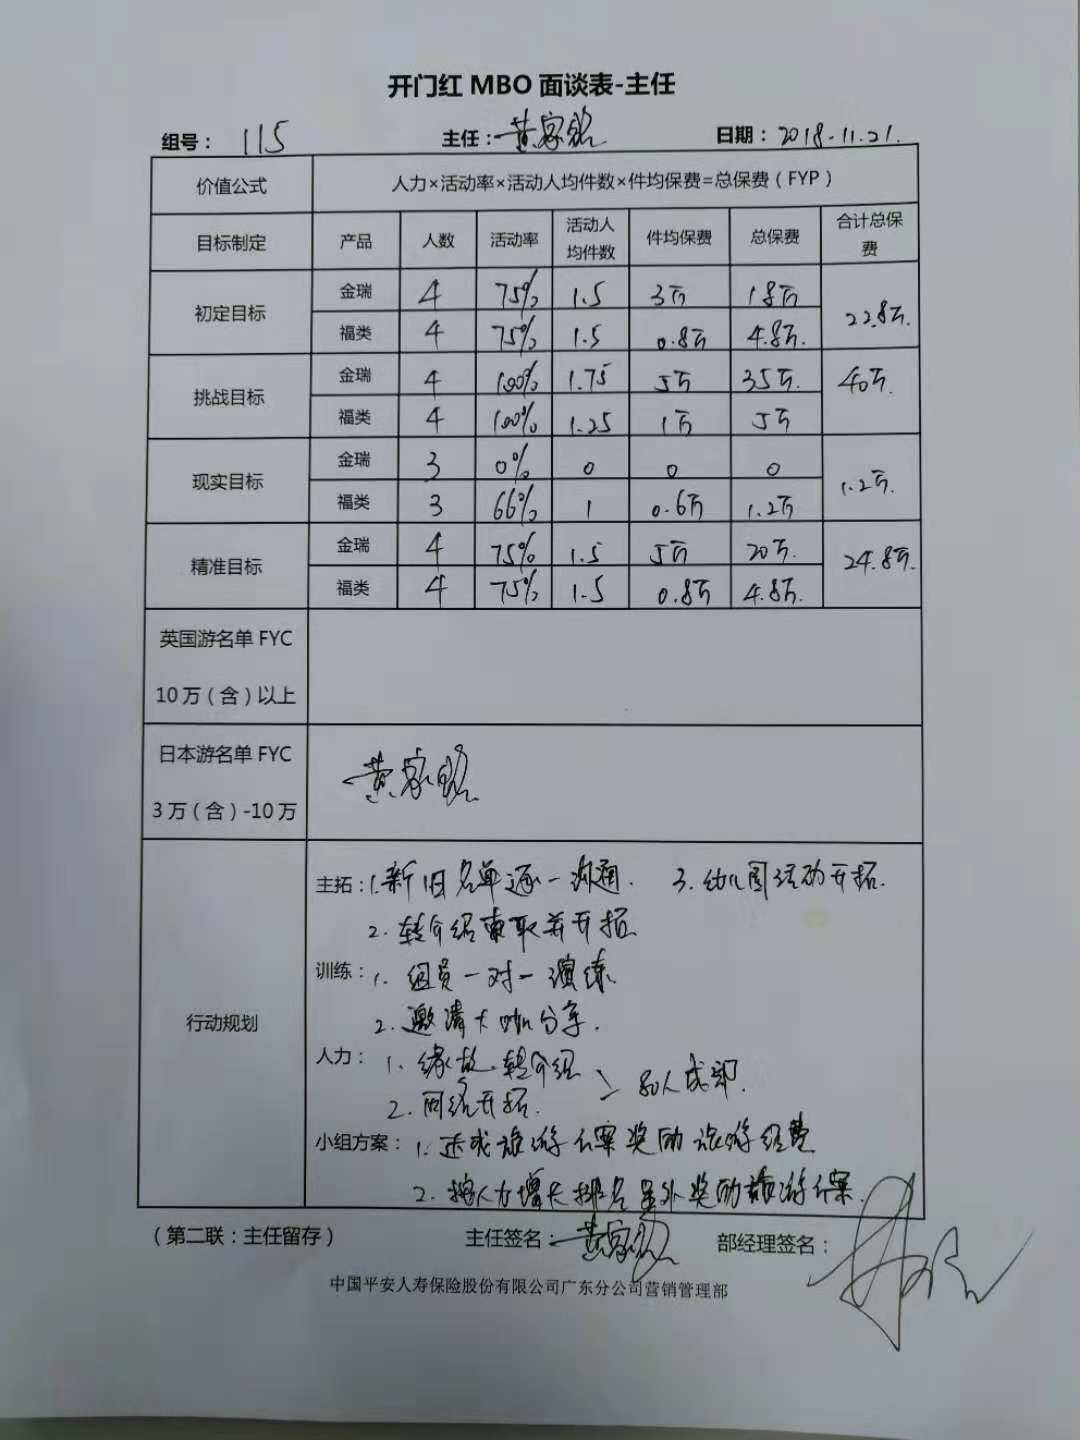 开门红 MBO 面谈表-主任
组号： 115 主任：黄家铭 日期：2018.11.21.
价值公式 人力×活动率×活动人均件数×件均保费=总保费（FYP）
目标制定 产品 人数 活动率 活动人均件数 件均保费 总保费 合计总保费
初定目标 金瑞 4 75% 1.5 3万 18万 22.8万.
福类 4 75% 1.5 0.8万 4.8万.
挑战目标 金瑞 4 100% 1.75 5万 35万. 40万.
福类 4 100% 1.25 1万 5万
现实目标 金瑞 3 0% 0 0 0 1.2万.
福类 3 66% 1 0.6万 1.2万
精准目标 金瑞 4 75% 1.5 5万 20万. 24.8万.
福类 4 75% 1.5 0.8万 4.8万.
英国游名单 FYC
10万（含）以上
日本游名单 FYC
3万（含）-10万
黄家铭
行动规划
主拓：1.新旧名单逐一沟通. 3.幼儿园活动开拓.
2.转介绍索取并开拓
训练：1.组员一对一演练.
2.邀请大咖分享.
人力：1.缘故.转介绍
2.网络开拓. 人成部.
小组方案：1.达成旅游方案奖励旅游经费
2.按人力增长排名另外奖励旅游方案.
（第二联：主任留存） 主任签名：黄家铭 部经理签名：
中国平安人寿保险股份有限公司广东分公司营销管理部